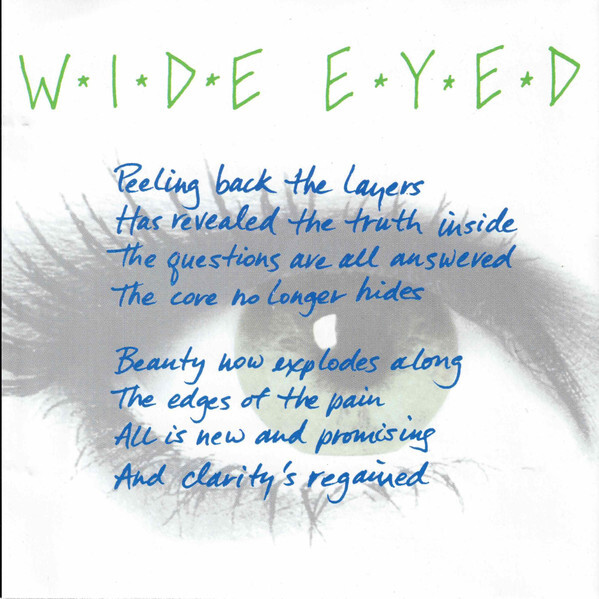 W*I*D*E E*Y*E*D
Peeling back the layers
Has revealed the truth inside
The questions are all answered
The core no longer hides
Beauty now explodes along
The edges of the pain
All is new and promising
And clarity's regained